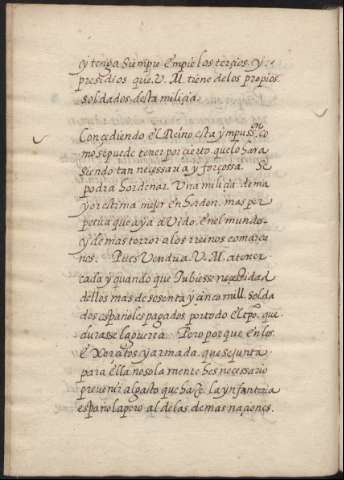 y tenga siempre en pie los tercios. y
presidios que. V. M. tiene de los propios
soldados desta milicia.
Concediendo el Reino esta ympussⁿ. co
mo se puede tener por cierto que lo hara
siendo tan necessaria y forçossa. Se
podra hordenar. Una milicia de ma
yor estima mejor en horden. mas per
petua que aya avido. en el mundo.
y de mas terror a los rreinos comarca
nos. Pues Vendria. V. M. a tener
cada y quando que Jubiesse necesidad
dellos mas de sesenta y cinco mill. solda
dos españoles pagados por todo el tpo. que
durasse la guerra. Pero porque en los
Exercitos y armada. que se junta
para ella no sola mente hes necessario
prevenir al gasto que haze la ynfanteria
española pero al de las demas naciones.